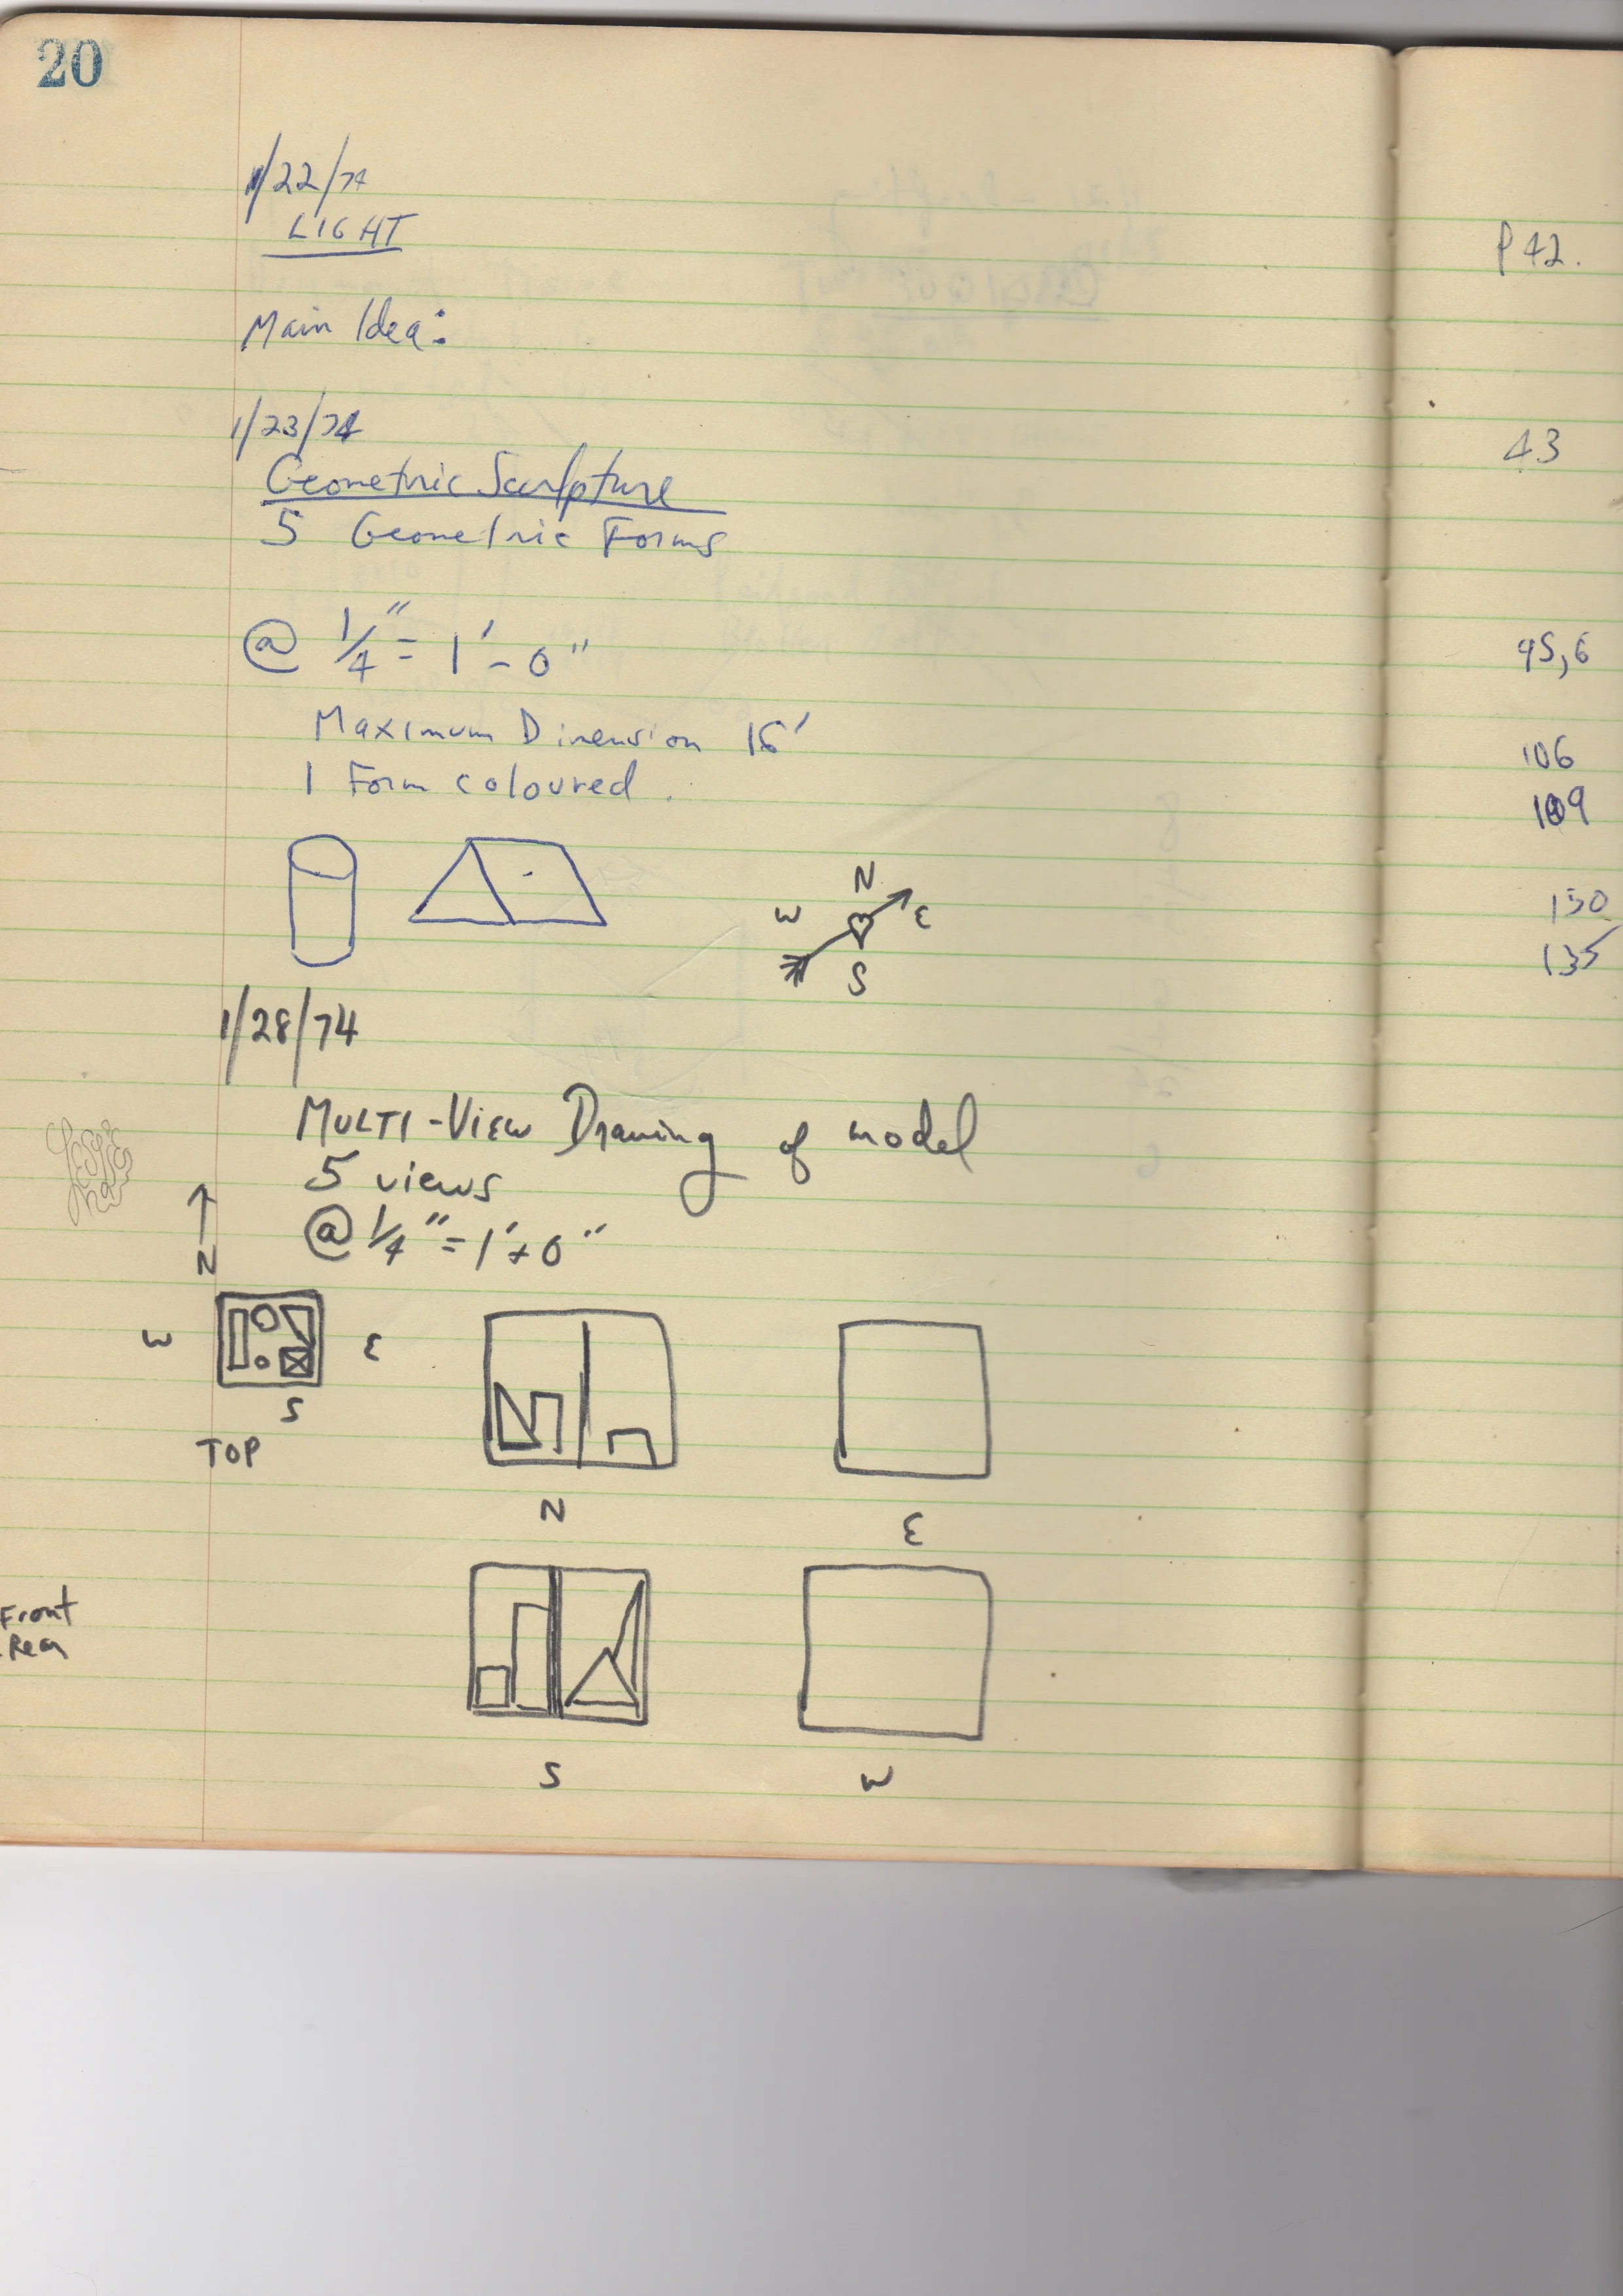 20
1/22/74
LIGHT
Main Idea:
1/23/74
Geometric Sculpture
5 Geometric Forms
@ 1/4" = 1'-0"
Maximum Dimension 16'
1 Form coloured.
N
W E
S
1/28/74
MULTI-VIEW Drawing of model
5 views
@ 1/4" = 1'-0"
N
W E
S
TOP
N
E
Front
Rear
S
W
P 42.
43
95,6
106
109
130
135